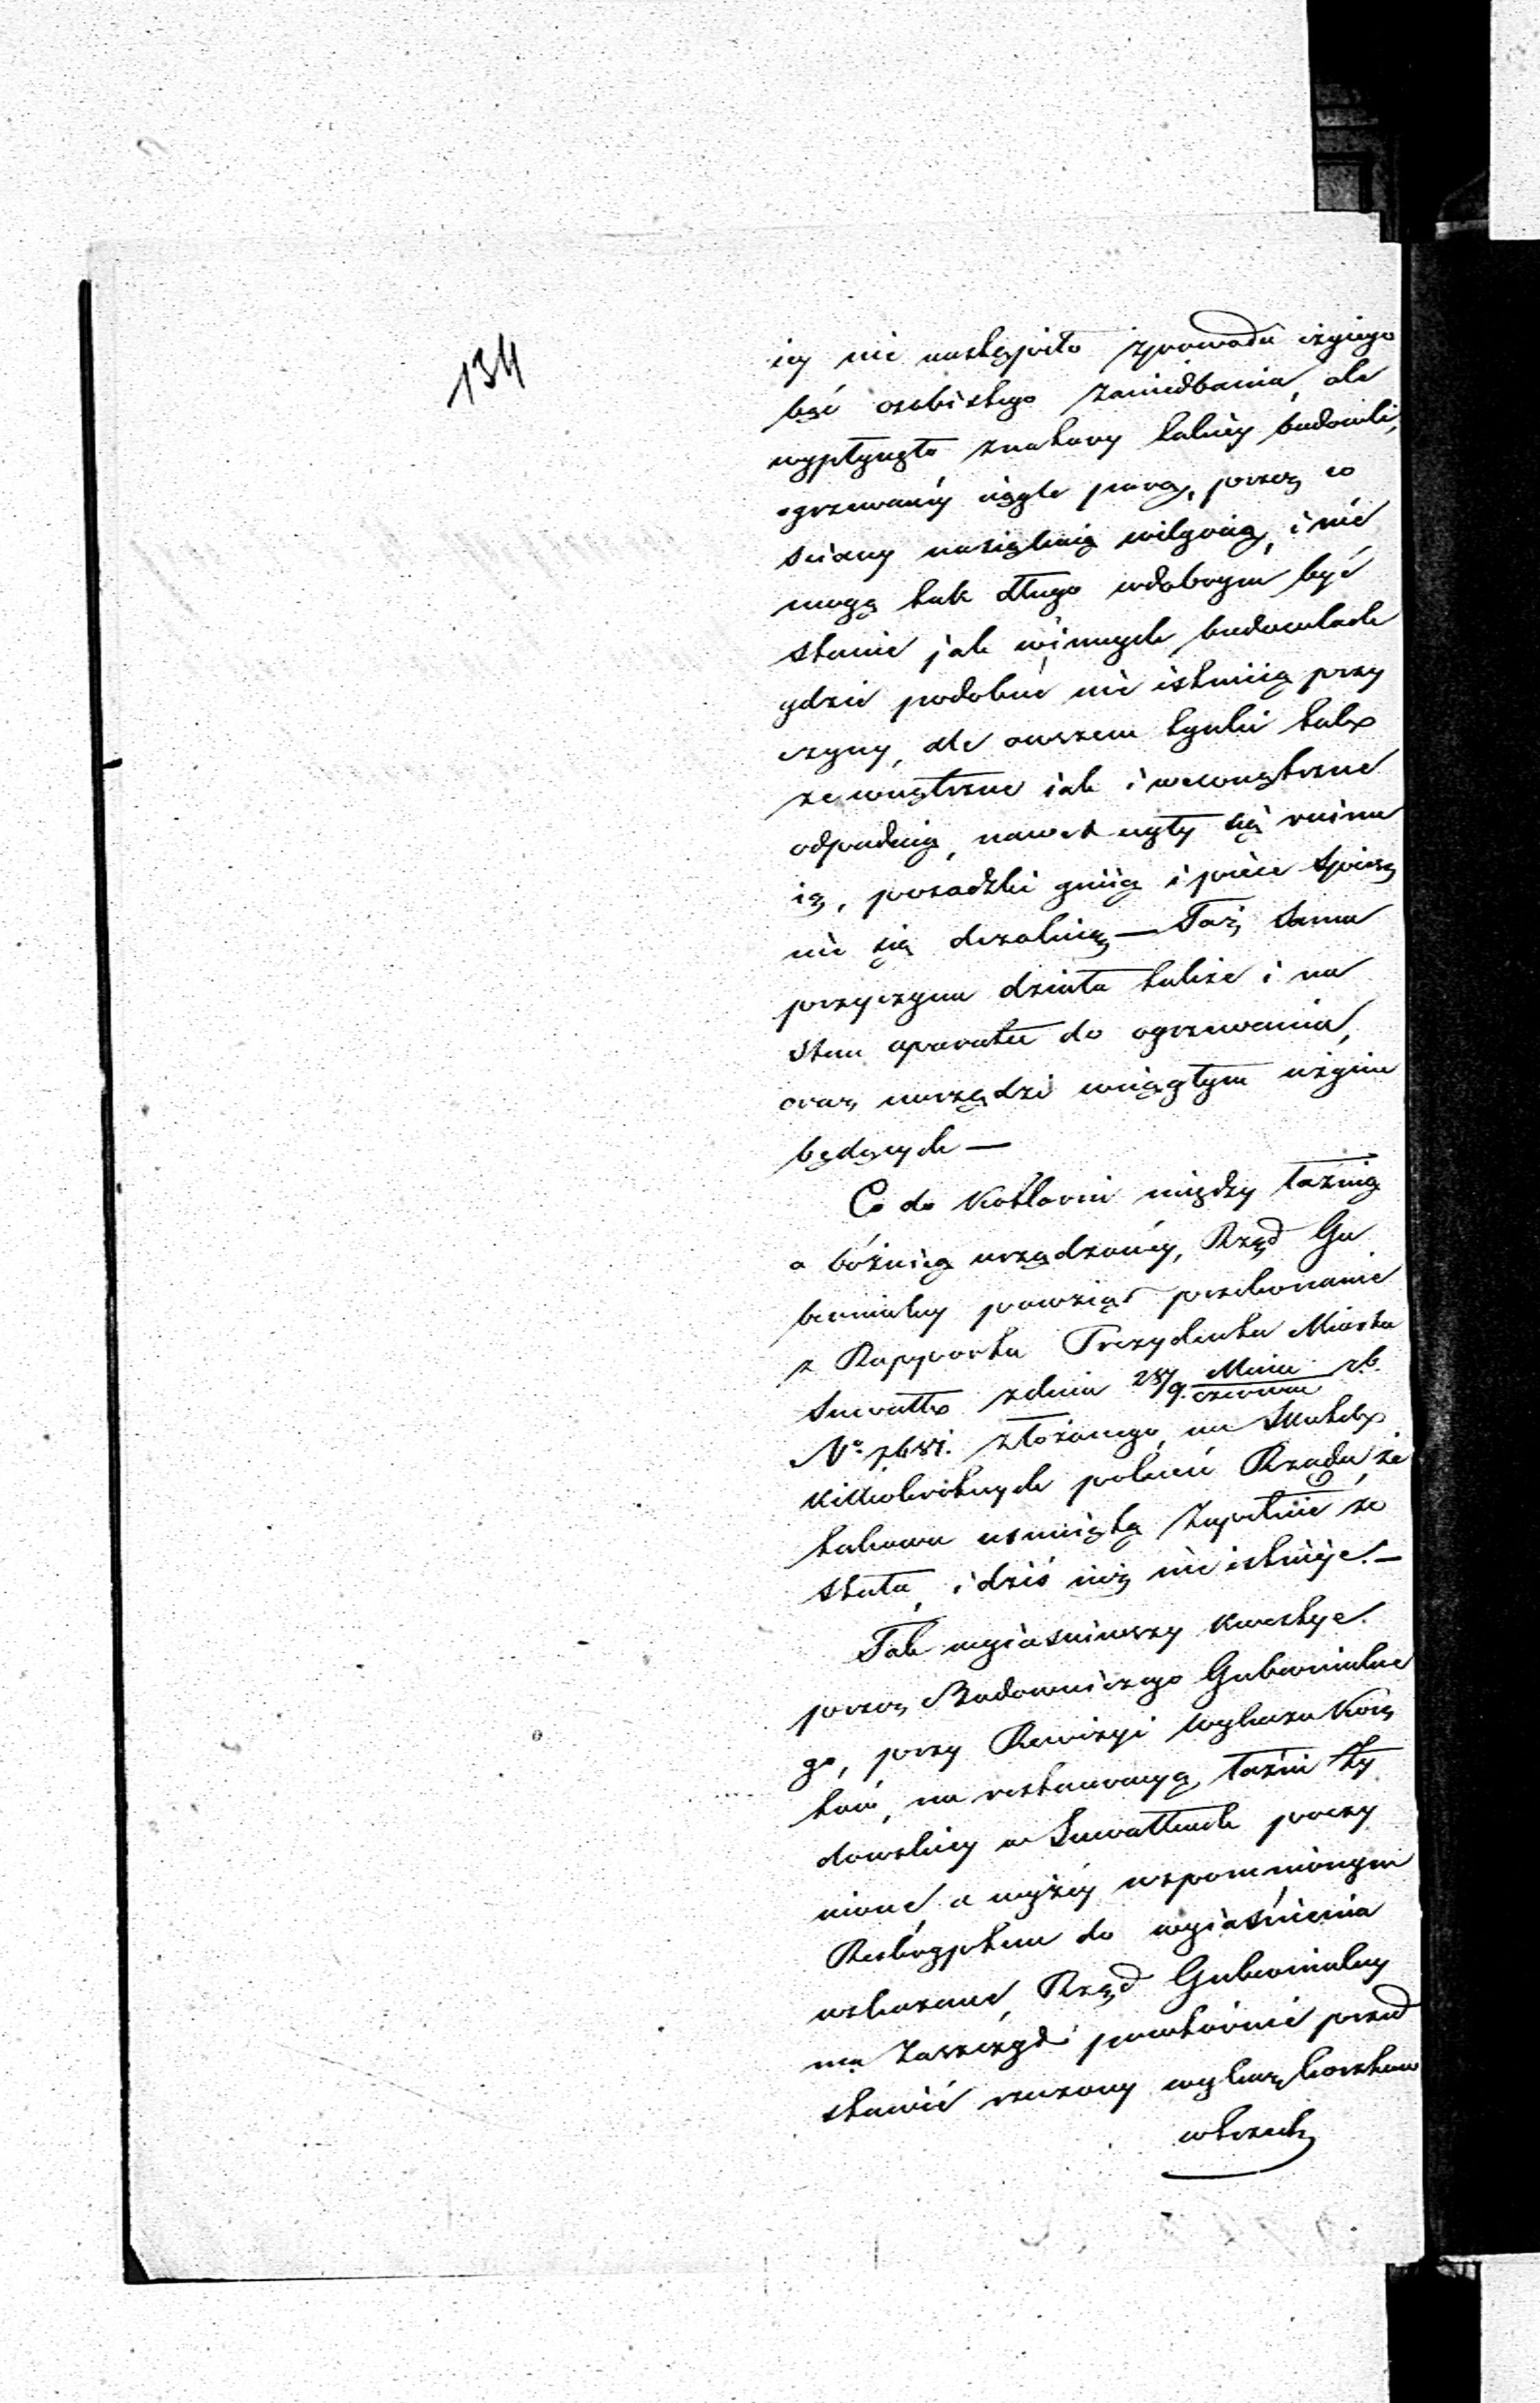 134
iey nie nastąpiło zpowodu czyiego
bąć osobistego zaniedbania, ale
wypłynęło znatury takiey budowli,
ogrzewanéy ciągle parą, przez co
ściany nasiąkaią wilgocią, i nie
mogą tak długo wdobrym być
stanie jak winnych budowlach
gdzie podobne nie istnieią przy
czyny, ale owszem tynki tak
zewnętrzne iak i wewnętrzne
odpadaią, nawet cegły się ruinu
ią, posadzki gniią i piece spiesz
nie się dezeluią — Taż sama
przyczyna działa także i na
stan aparatu do ogrzewania,
oraz narzędzi wciągłym użyciu
będących —
Co do Kotłarni między łaźnią
a bóżnicą urządzonéy, Rząd Gu
bernialny powziął przekonanie
z Rapportu Prezydenta Miasta
Suwałk zdnia 28/9 Maia/Czerwca r.b.
złożonego, na skutek
kilkokrotnych poleceń Rządu, że
takowa usuniętą zupełnie zo
stała, i dziś iuż nie istnieje. —
Tak wyiaśniwszy kwestye
przez Budowniczego Gubernialne
go, przy Rewizyi wykazu kosz
tów, na restauracyą łaźni Ży
dowskiey w Suwałkach poczy
nione a wyżéy wspomnionym
Reskryptem do wyiaśnienia
wskazane, Rząd Gubernialny
ma zaszczyt powtórnie przed
stawić rzeczony wykaz kosztów
wtrzech